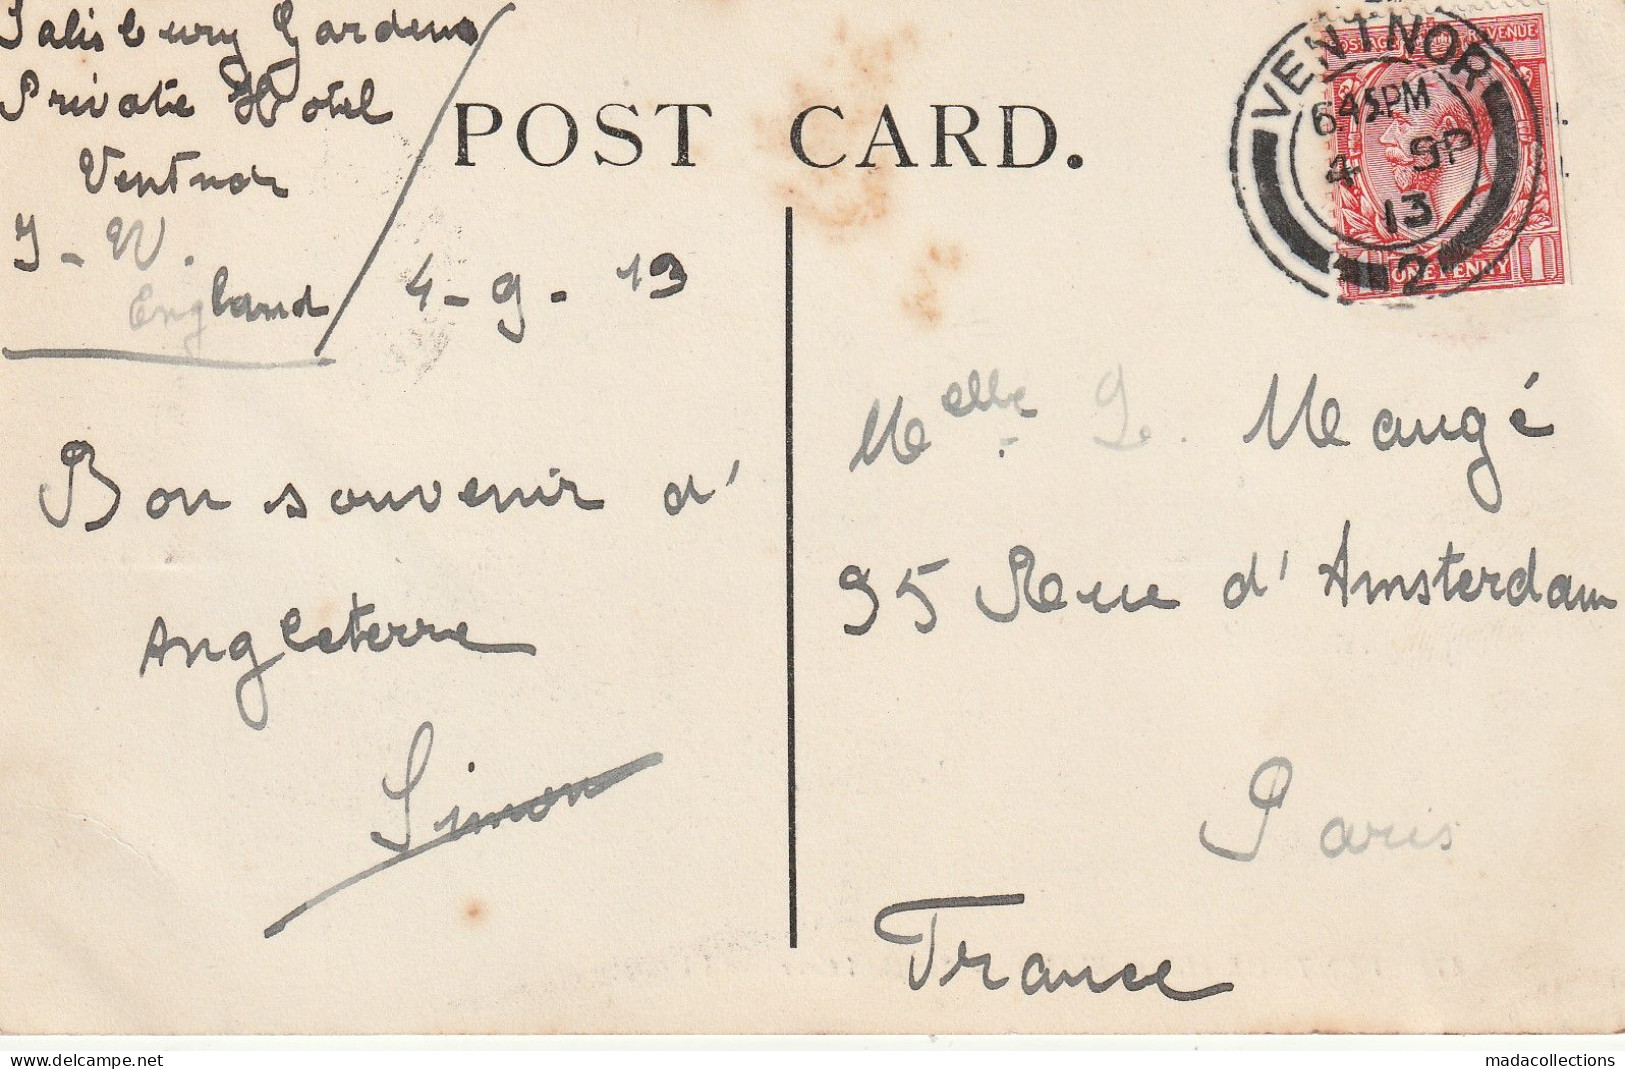 Salisbury Gardens
Private Hotel
Ventnor
I-W.
England
4-9-13
POST CARD.
VENTNOR
6.45PM
4 SP
13
2
POSTAGE REVENUE
1 ONE PENNY 1
Bon souvenir d'
Angleterre
Simon
Melle Maugé
95 Rue d'Amsterdam
Paris
France
www.delcampe.net
madacollections